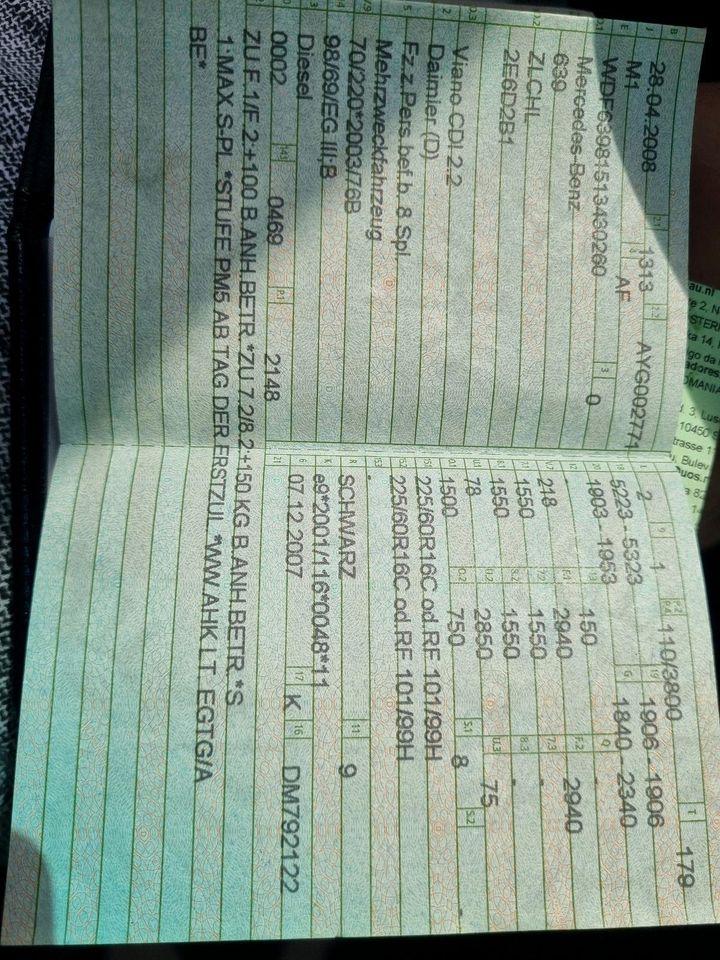 B 28.04.2008 2.1 1313 2.2 AYG002771
J M1 4 AF
E WDF63981513430260 3 0
Mercedes-Benz
639
ZLCHL
2E6D2B1
D.3 Viano CDI 2.2
2 Daimler (D)
5 Fz.z.Pers.bef.b. 8 Spl.
Mehrzweckfahrzeug
70/220*2003/76B
14 98/69/EG III;B
Diesel
0002 14.1 0469 P.1 2148
L 2 9 1 P.2 P.4 110/3800 T 179
18 5223 - 5323 19 1906 - 1906
20 1903 - 1953 G 1840 - 2340
12 - 13 150 Q -
V.7 218 F.1 2940 F.2 2940
7.1 1550 7.2 1550 7.3 -
8.1 1550 8.2 1550 8.3 -
U.1 78 U.2 2850 U.3 75
O.1 1500 O.2 750 S.1 8 S.2 -
15.1 225/60R16C od.RF 101/99H
15.2 225/60R16C od.RF 101/99H
15.3 -
R SCHWARZ 11 9
K e9*2001/116*0048*11
6 07.12.2007 17 K 16 DM792122
21
ZU F.1/F.2:+100 B.ANH.BETR.*ZU 7.2/8.2:+150 KG B.ANH.BETR.*S
1:MAX.S-PL.*STUFE PM5 AB TAG DER ERSTZUL.*WW.AHK LT. EGTG/A
BE*
au.nl
10450
trasse 1